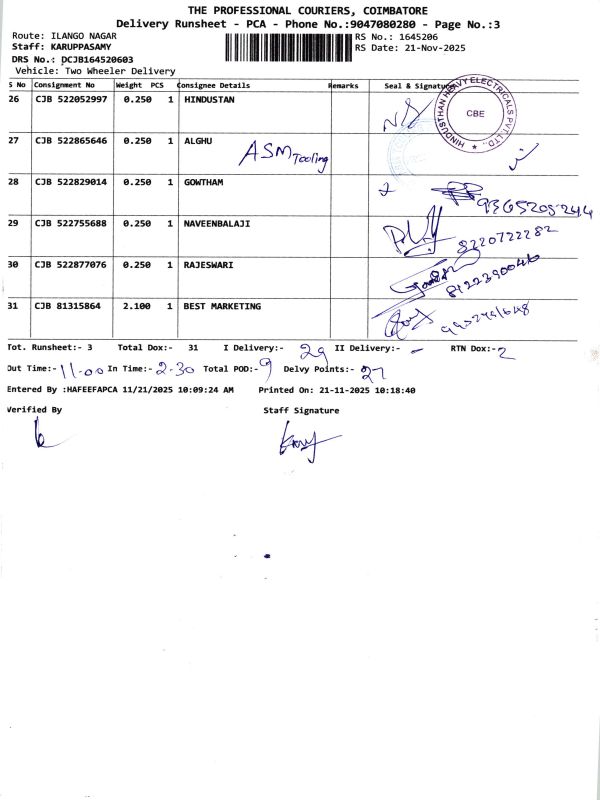 THE PROFESSIONAL COURIERS, COIMBATORE
Delivery Runsheet - PCA - Phone No.:9047080280 - Page No.:3
Route: ILANGO NAGAR
RS No.: 1645206
Staff: KARUPPASAMY
RS Date: 21-Nov-2025
DRS No.: DCJB164520603
Vehicle: Two Wheeler Delivery
S No Consignment No Weight PCS Consignee Details Remarks Seal & Signature
26 CJB 522052997 0.250 1 HINDUSTAN
HINDUSTHAN HEAVY ELECTRICALS PVT.LTD.. ★
CBE
27 CJB 522865646 0.250 1 ALGHU
ASM Tooling
28 CJB 522829014 0.250 1 GOWTHAM
9365205244
29 CJB 522755688 0.250 1 NAVEENBALAJI
8220722282
30 CJB 522877076 0.250 1 RAJESWARI
8122390046
31 CJB 81315864 2.100 1 BEST MARKETING
Tot. Runsheet:- 3 Total Dox:- 31 I Delivery:- 29 II Delivery:- - RTN Dox:- 2
Out Time:- 11-00 In Time:- 2-30 Total POD:- 9 Delvy Points:- 27
Entered By :HAFEEFAPCA 11/21/2025 10:09:24 AM Printed On: 21-11-2025 10:18:40
Verified By Staff Signature